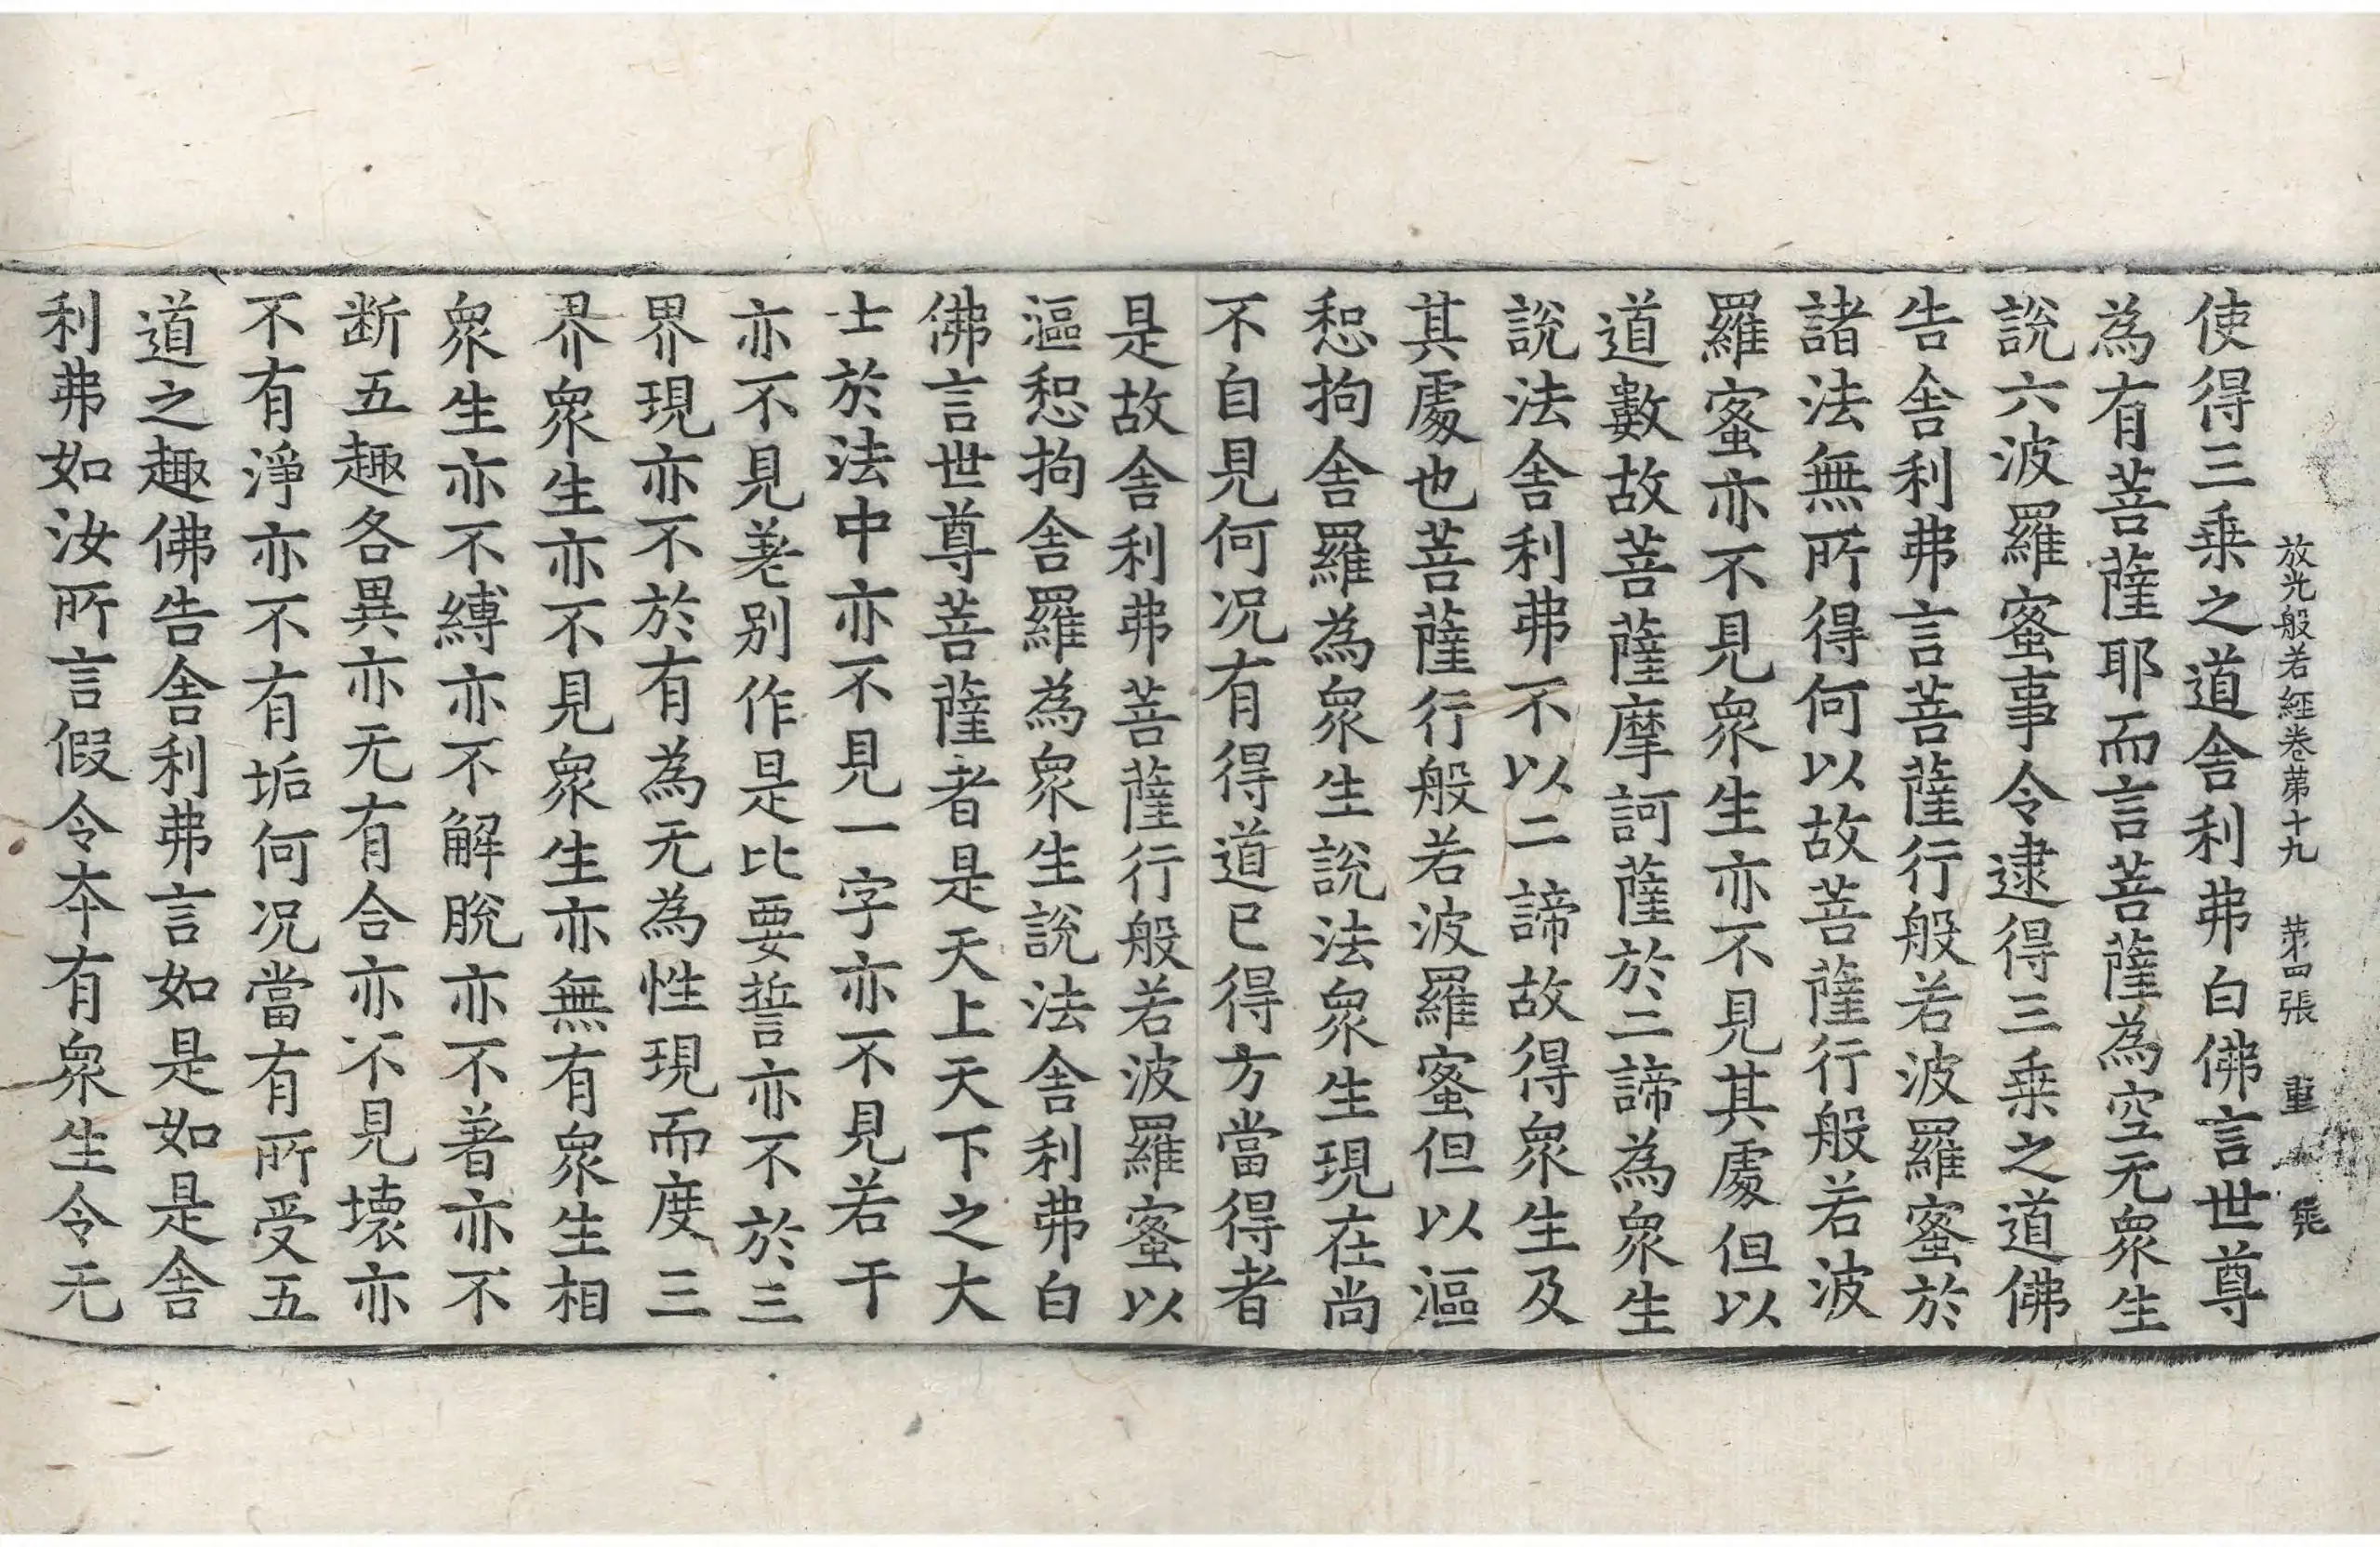 放光般若経卷第十九 第四張 重
使得三乗之道舎利弗白佛言世尊
為有菩薩耶而言菩薩為空无衆生
說六波羅蜜事令逮得三乗之道佛
告舎利弗言菩薩行般若波羅蜜於
諸法無所得何以故菩薩行般若波
羅蜜亦不見衆生亦不見其處但以
道數故菩薩摩訶薩於二諦為衆生
說法舎利弗不以二諦故得衆生及
其處也菩薩行般若波羅蜜但以漚
惒拘舎羅為衆生說法衆生現在尚
不自見何况有得道已得方當得者
是故舎利弗菩薩行般若波羅蜜以
漚惒拘舎羅為衆生說法舎利弗白
佛言世尊菩薩者是天上天下之大
士於法中亦不見一字亦不見若干
亦不見差別作是比要誓亦不於三
界現亦不於有為无為性現而度三
界衆生亦不見衆生亦無有衆生相
衆生亦不縛亦不解脫亦不著亦不
断五趣各異亦无有合亦不見壞亦
不有淨亦不有垢何况當有所受五
道之趣佛告舎利弗言如是如是舎
利弗如汝所言假令本有衆生令无